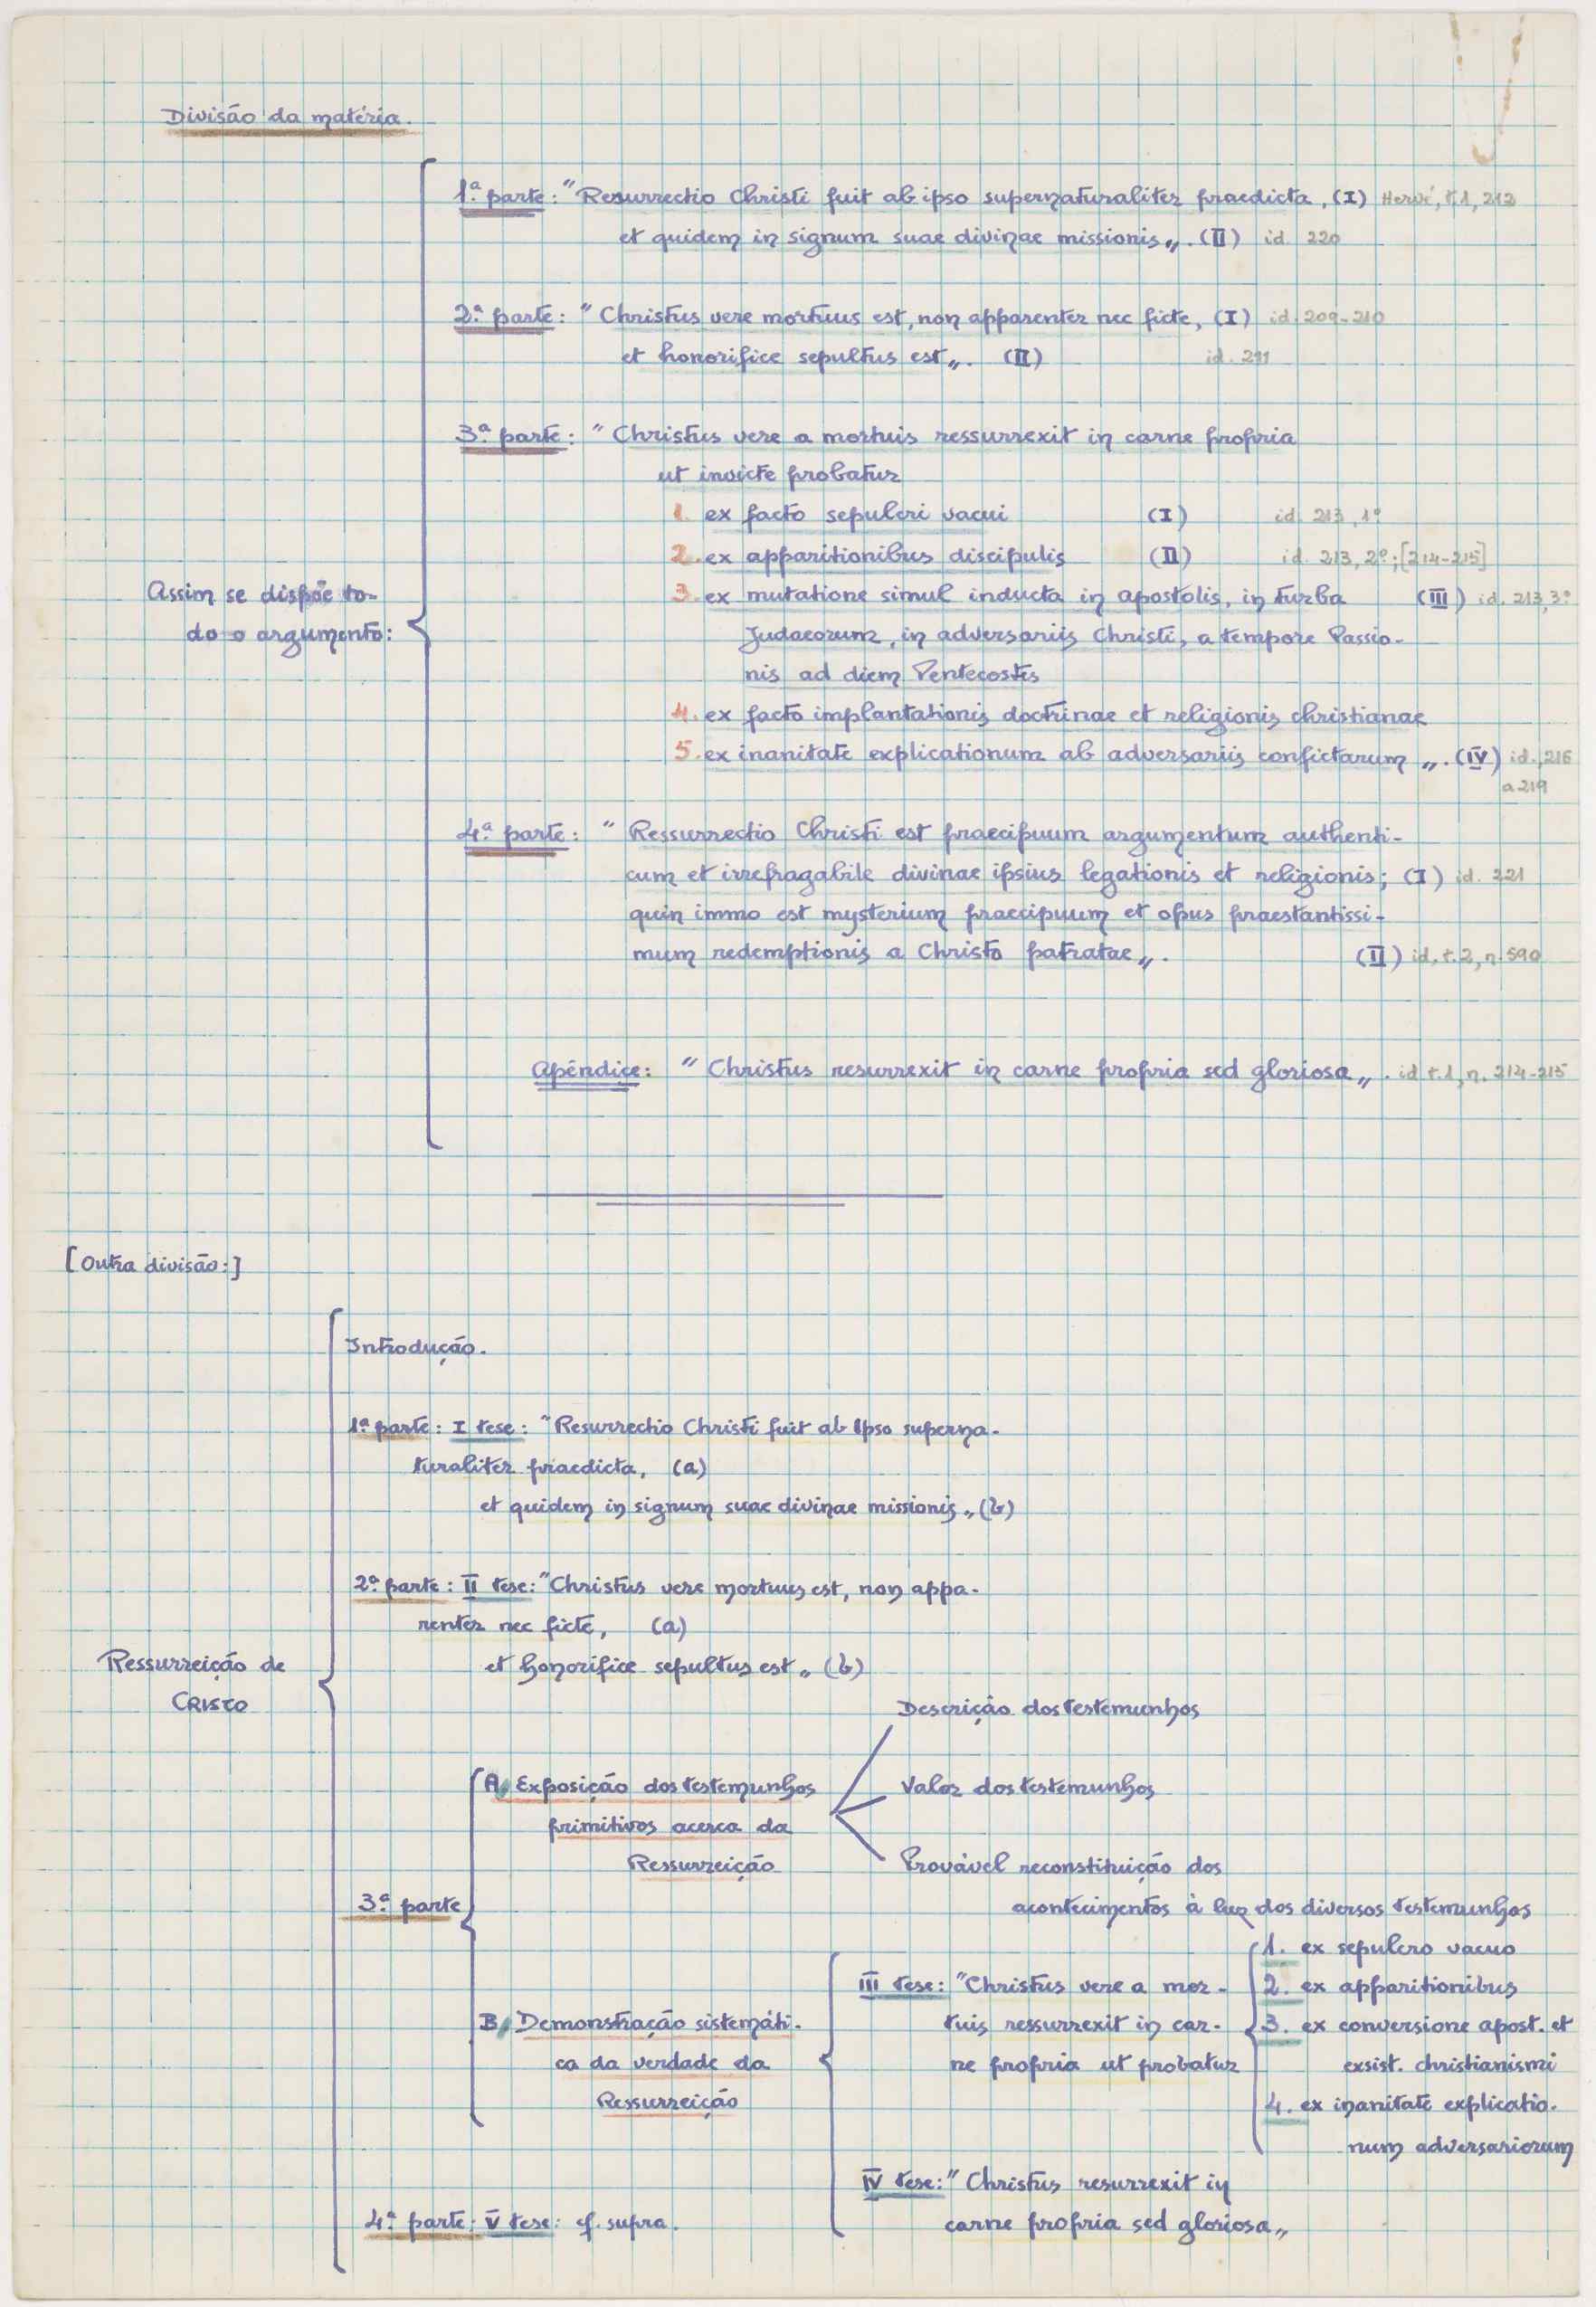 Divisão da matéria.
1ª parte: "Resurrectio Christi fuit ab ipso supernaturaliter praedicta, (I) Hervé, t.1, 212
et quidem in signum suae divinae missionis„. (II) id. 220
2ª parte: "Christus vere mortuus est, non apparenter nec ficte, (I) id. 209-210
et honorifice sepultus est„. (II) id. 211
3ª parte: "Christus vere a mortuis ressurrexit in carne propria
ut invicte probatur
1. ex facto sepulcri vacui (I) id. 213, 1º
2. ex apparitionibus discipulis (II) id. 213, 2º; [214-215]
Assim se dispõe to-
3. ex mutatione simul inducta in apostolis, in turba (III) id. 213, 3º
do o argumento:
Judaeorum, in adversariis Christi, a tempore Passio-
nis ad diem Pentecostis
4. ex facto implantationis doctrinae et religionis christianae
5. ex inanitate explicationum ab adversariis confictarum„. (IV) id., 216
a 219
4ª parte: "Ressurrectio Christi est praecipuum argumentum authenti-
cum et irrefragabile divinae ipsius legationis et religionis; (I) id. 221
quin immo est mysterium praecipuum et opus praestantissi-
mum redemptionis a Christo patratae„. (II) id. t.2, n. 590
Apêndice: "Christus resurrexit in carne propria sed gloriosa„. id t.1, n. 214-215
[Outra divisão:]
Introdução.
1ª parte: I tese: "Resurrectio Christi fuit ab Ipso superna-
turaliter praedicta, (a)
et quidem in signum suae divinae missionis„ (b)
2ª parte: II tese: "Christus vere mortuus est, non appa-
renter nec ficte, (a)
Ressurreição de
et honorifice sepultus est„ (b)
CRISTO
Descrição dos testemunhos
A, Exposição dos testemunhos
Valor dos testemunhos
primitivos acerca da
Ressurreição
Provável reconstituição dos
3ª parte
acontecimentos à luz dos diversos testemunhos
1. ex sepulcro vacuo
III tese: "Christus vere a mor-
2. ex apparitionibus
B, Demonstração sistemáti-
tuis ressurrexit in car-
3. ex conversione apost. et
ca da verdade da
ne propria ut probatur
exsist. christianismi
Ressurreição
4. ex inanitate explicatio-
num adversariorum
IV tese: "Christus resurrexit in
4ª parte: V tese: cf. supra.
carne propria sed gloriosa„